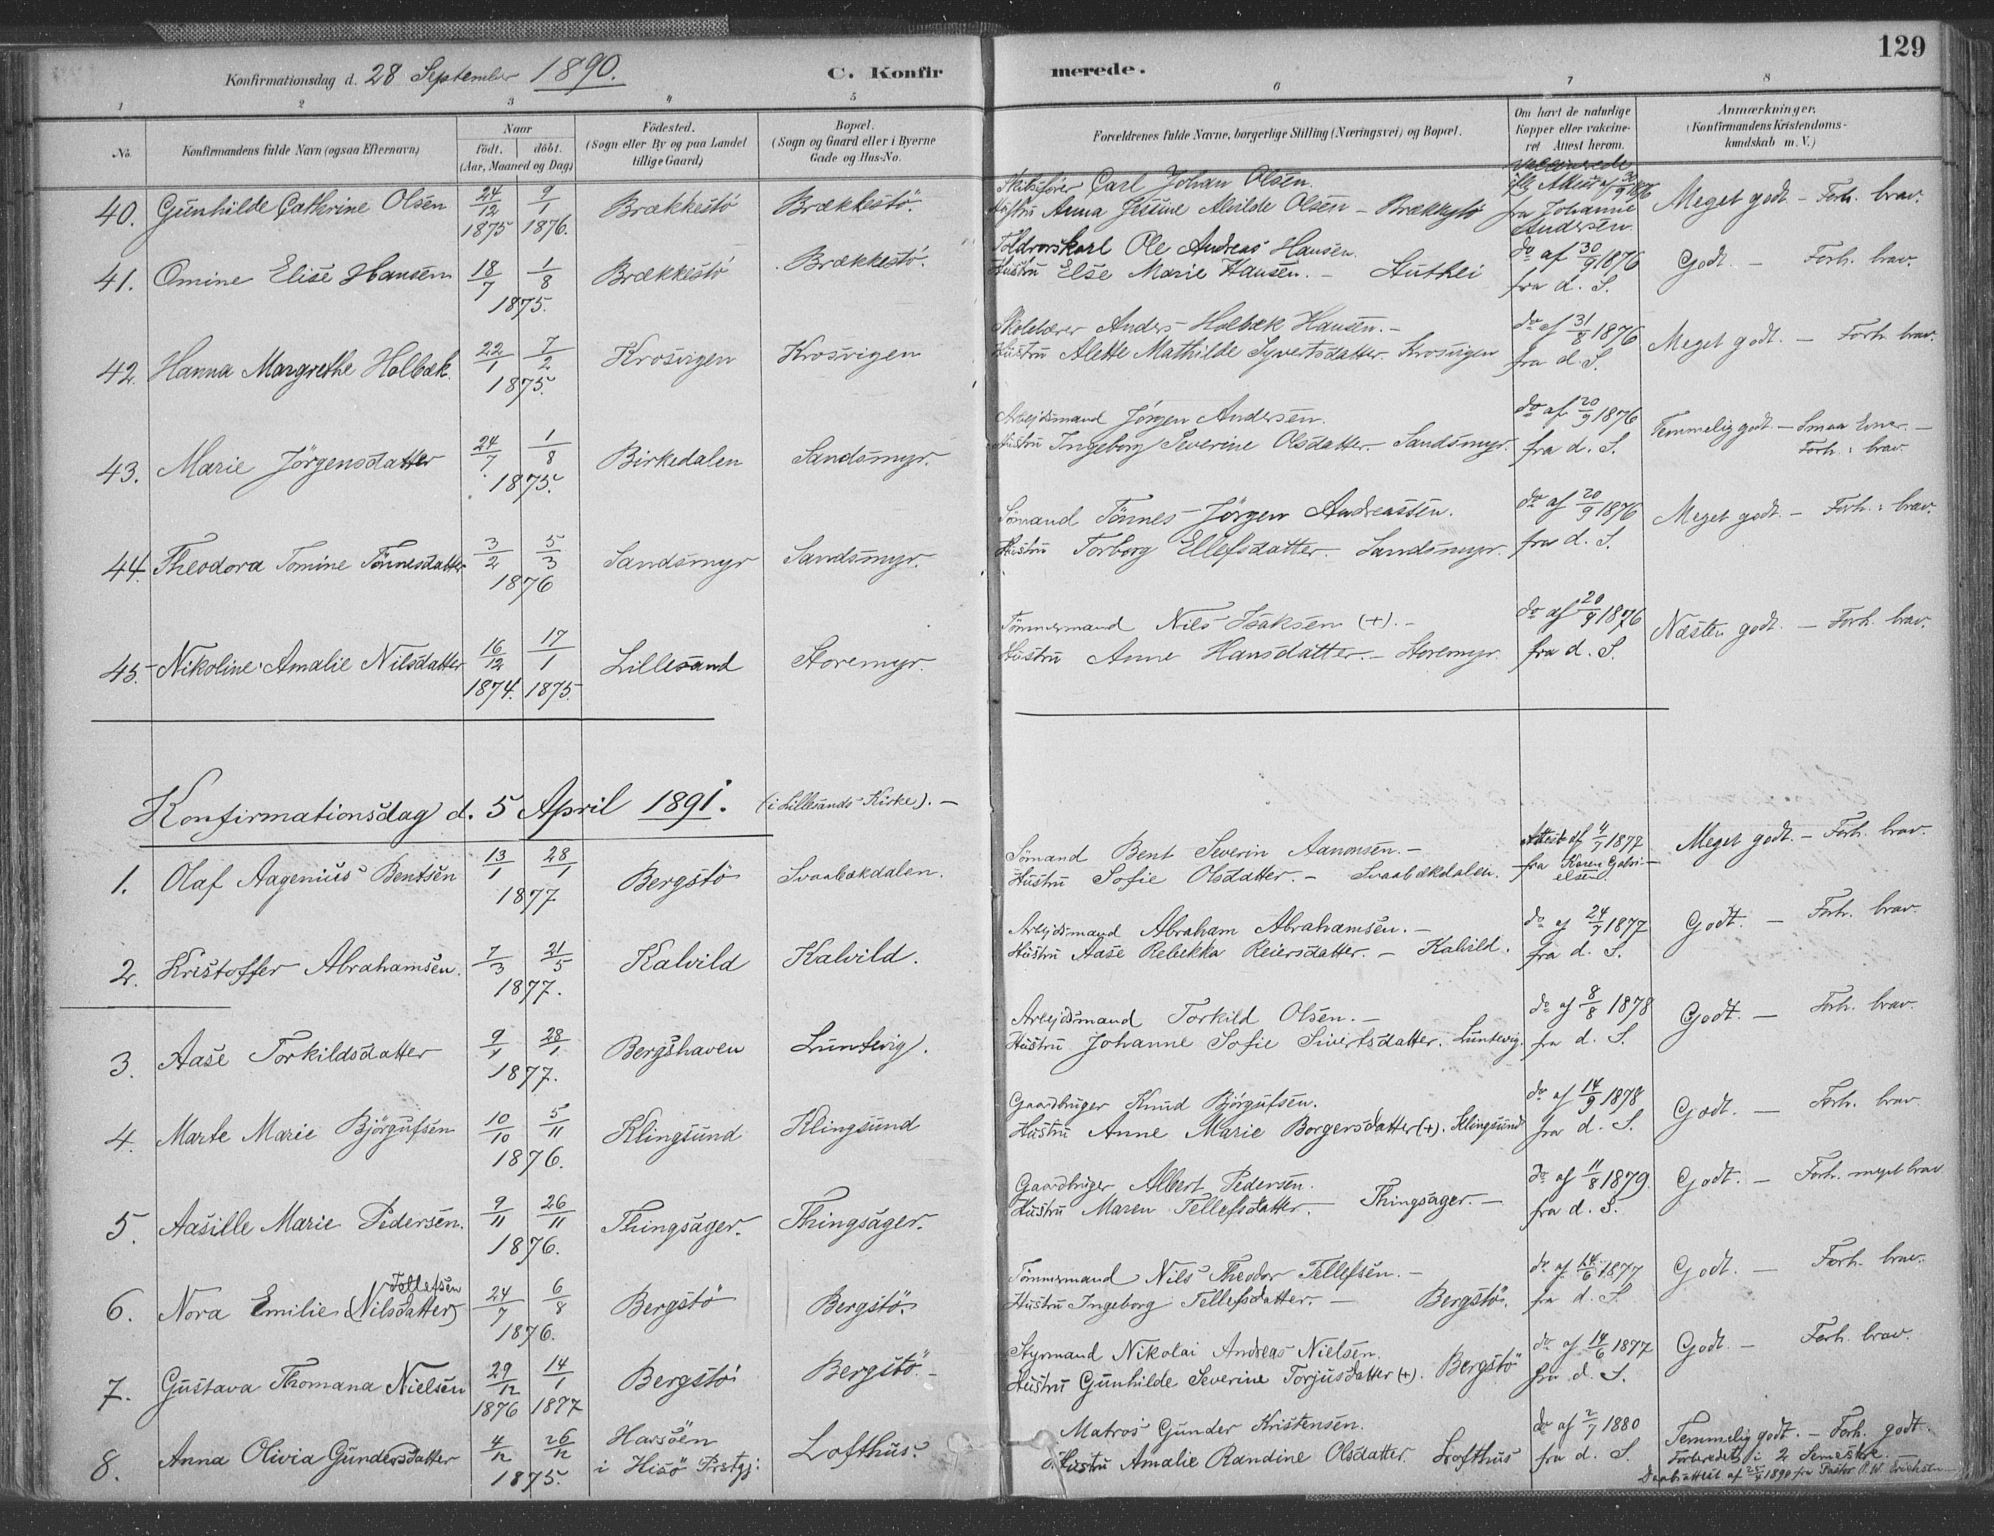 129
Konfirmationsdag d. 28 September 1890.
C. Konfirmerede.
1 2 3 4 5 6 7 8
No. Konfirmandens fulde Navn (ogsaa Efternavn) Naar født. døbt. (Aar, Maaned og Dag) Fødested. (Sogn eller By og paa Landet tillige Gaard) Bopæl. (Sogn og Gaard eller i Byerne Gade og Hus-No. Forældrenes fulde Navne, borgerlige Stilling (Næringsvei) og Bopæl. Om havt de naturlige Kopper eller vakcineret Attest herom. Anmærkninger. (Konfirmandens Kristendomskundskab m. V.)
40. Gunhilde Cathrine Olsen 24/12 1875 9/1 1876. Brækkestö Brækkestö. Carl Johan Olsen.
Hustru Anna Jesine Alvilde Olsen – Brækkestö Attest af 30/9 1876 fra Johanne Andersen Meget godt – Forh. brav.
41. Omine Elise Hansen 18/7 1/8 1875. Brækkestö Brækkestö. Toldrorskarl Ole Andreas Hansen.
Hustru Else Marie Hansen. – do af 30/9 1876 fra d. S. Godt. – Forh. brav.
42. Hanna Margrethe Holbæk. 22/1 7/2 1875. Krosvigen Krosvigen Skolelærer Anders Holbæk Hansen. –
Hustru Alette Mathilde Syvertsdatter. Krosvigen do af 31/8 1876 fra d. S. Meget godt. – Forh. brav.
43. Marie Jörgensdatter 24/7 1/8 1875. Birkedalen Sandsmyr. Arbejdsmand Jörgen Andersen.
Hustru Ingeborg Severine Olsdatter – Sandsmyr. do af 20/9 1876 fra d. S. Temmelig godt – Smaa Evner – Forh: brav.
44. Theodora Tomine Tönnesdatter 3/2 5/3 1876 Sandsmyr Sandsmyr. Sömand Tönnes Jörgen Andreassen.
Hustru Torborg Ellefsdatter – Sandsmyr. do af 20/9 1876 fra d. S. Meget godt. – Forh: brav.
45. Nikoline Amalie Nilsdatter 16/12 1874. 17/1 1875. Lillesand Storemyr. Tömmermand Nils Isaksen (+). –
Hustru Anne Hansdatter. – Storemyr. do af 20/9 1876 fra d. S. Næsten godt. – Forh. brav.
Konfirmationsdag d. 5 April 1891. (i Lillesands Kirke). –
1. Olaf Aagenius Bentsen 13/1 28/1 1877. Bergstö Svaabækdalen. Sömand Bent Severin Aanonsen. –
Hustru Sofie Olsdatter. – Svaabækdalen. Attest af 4/7 1877 fra Karen Gabrielsen. Meget godt. – Forh. brav.
2. Kristoffer Abrahamsen. 7/3 21/5 1877. Kalvild Kalvild. Arbejdsmand Abraham Abrahamsen. –
Hustru Aase Rebekka Reiersdatter. – Kalvild. do af 24/7 1877 fra d. S. Godt. – Forh. brav.
3. Aase Torkildsdatter 9/1 28/1 1877. Bergshaven Luntevig. Arbejdsmand Torkild Olsen. –
Hustru Johanne Sofie Sivertsdatter. Luntevig. do af 8/8 1878 fra d. S. Godt. – Forh. brav.
4. Marte Marie Björgufsen 10/10 5/11 1876. Klingsund Klingsund Gaardbruger Knud Björgufsen.
Hustru Anne Marie Borgersdatter (+). Klingsund do af 14/9 1878 fra d. S. Godt. – Forh. brav.
5. Aasille Marie Pedersen. 9/11 26/11 1876. Thingsager. Thingsager. Gaardbruger Albert Pedersen.
Hustru Maren Tellefsdatter. – Thingsager. – do af 11/8 1879. fra d. S. Godt. – Forh. meget brav
6. Nora Emilie (Nilsdatter) Tellefsen 24/7 6/8 1876. Bergstö Bergstö. Tömmermand Nils Theodor Tellefsen. –
Hustru Ingeborg Tellefsdatter. – Bergstö. do af 14/6 1877 fra d. S. Godt. – Forh. brav.
7. Gustava Thomana Nielsen 29/12 1876 14/1 1877 Bergstö Bergstö. – Styrmand Nikolai Andreas Nielsen.
Hustru Gunhilde Severine Torjusdatter (+). Bergstö do af 14/6 1877 fra d. S. Godt. – Forh. brav.
8. Anna Olivia Gundersdatter 4/12 26/12 1875. Havsöen i Hisö Prstgj: Lofthus. Matros Gunder Kristensen.
Hustru Amalie Randine Olsdatter. Lofthus do af 2/7 1880 fra d. S. Temmelig godt. – Forh. godt.
Forberedet i 2 Semestre. –
Daabsattest af 25/9 1890 fra Pastor P. W. Erichsen